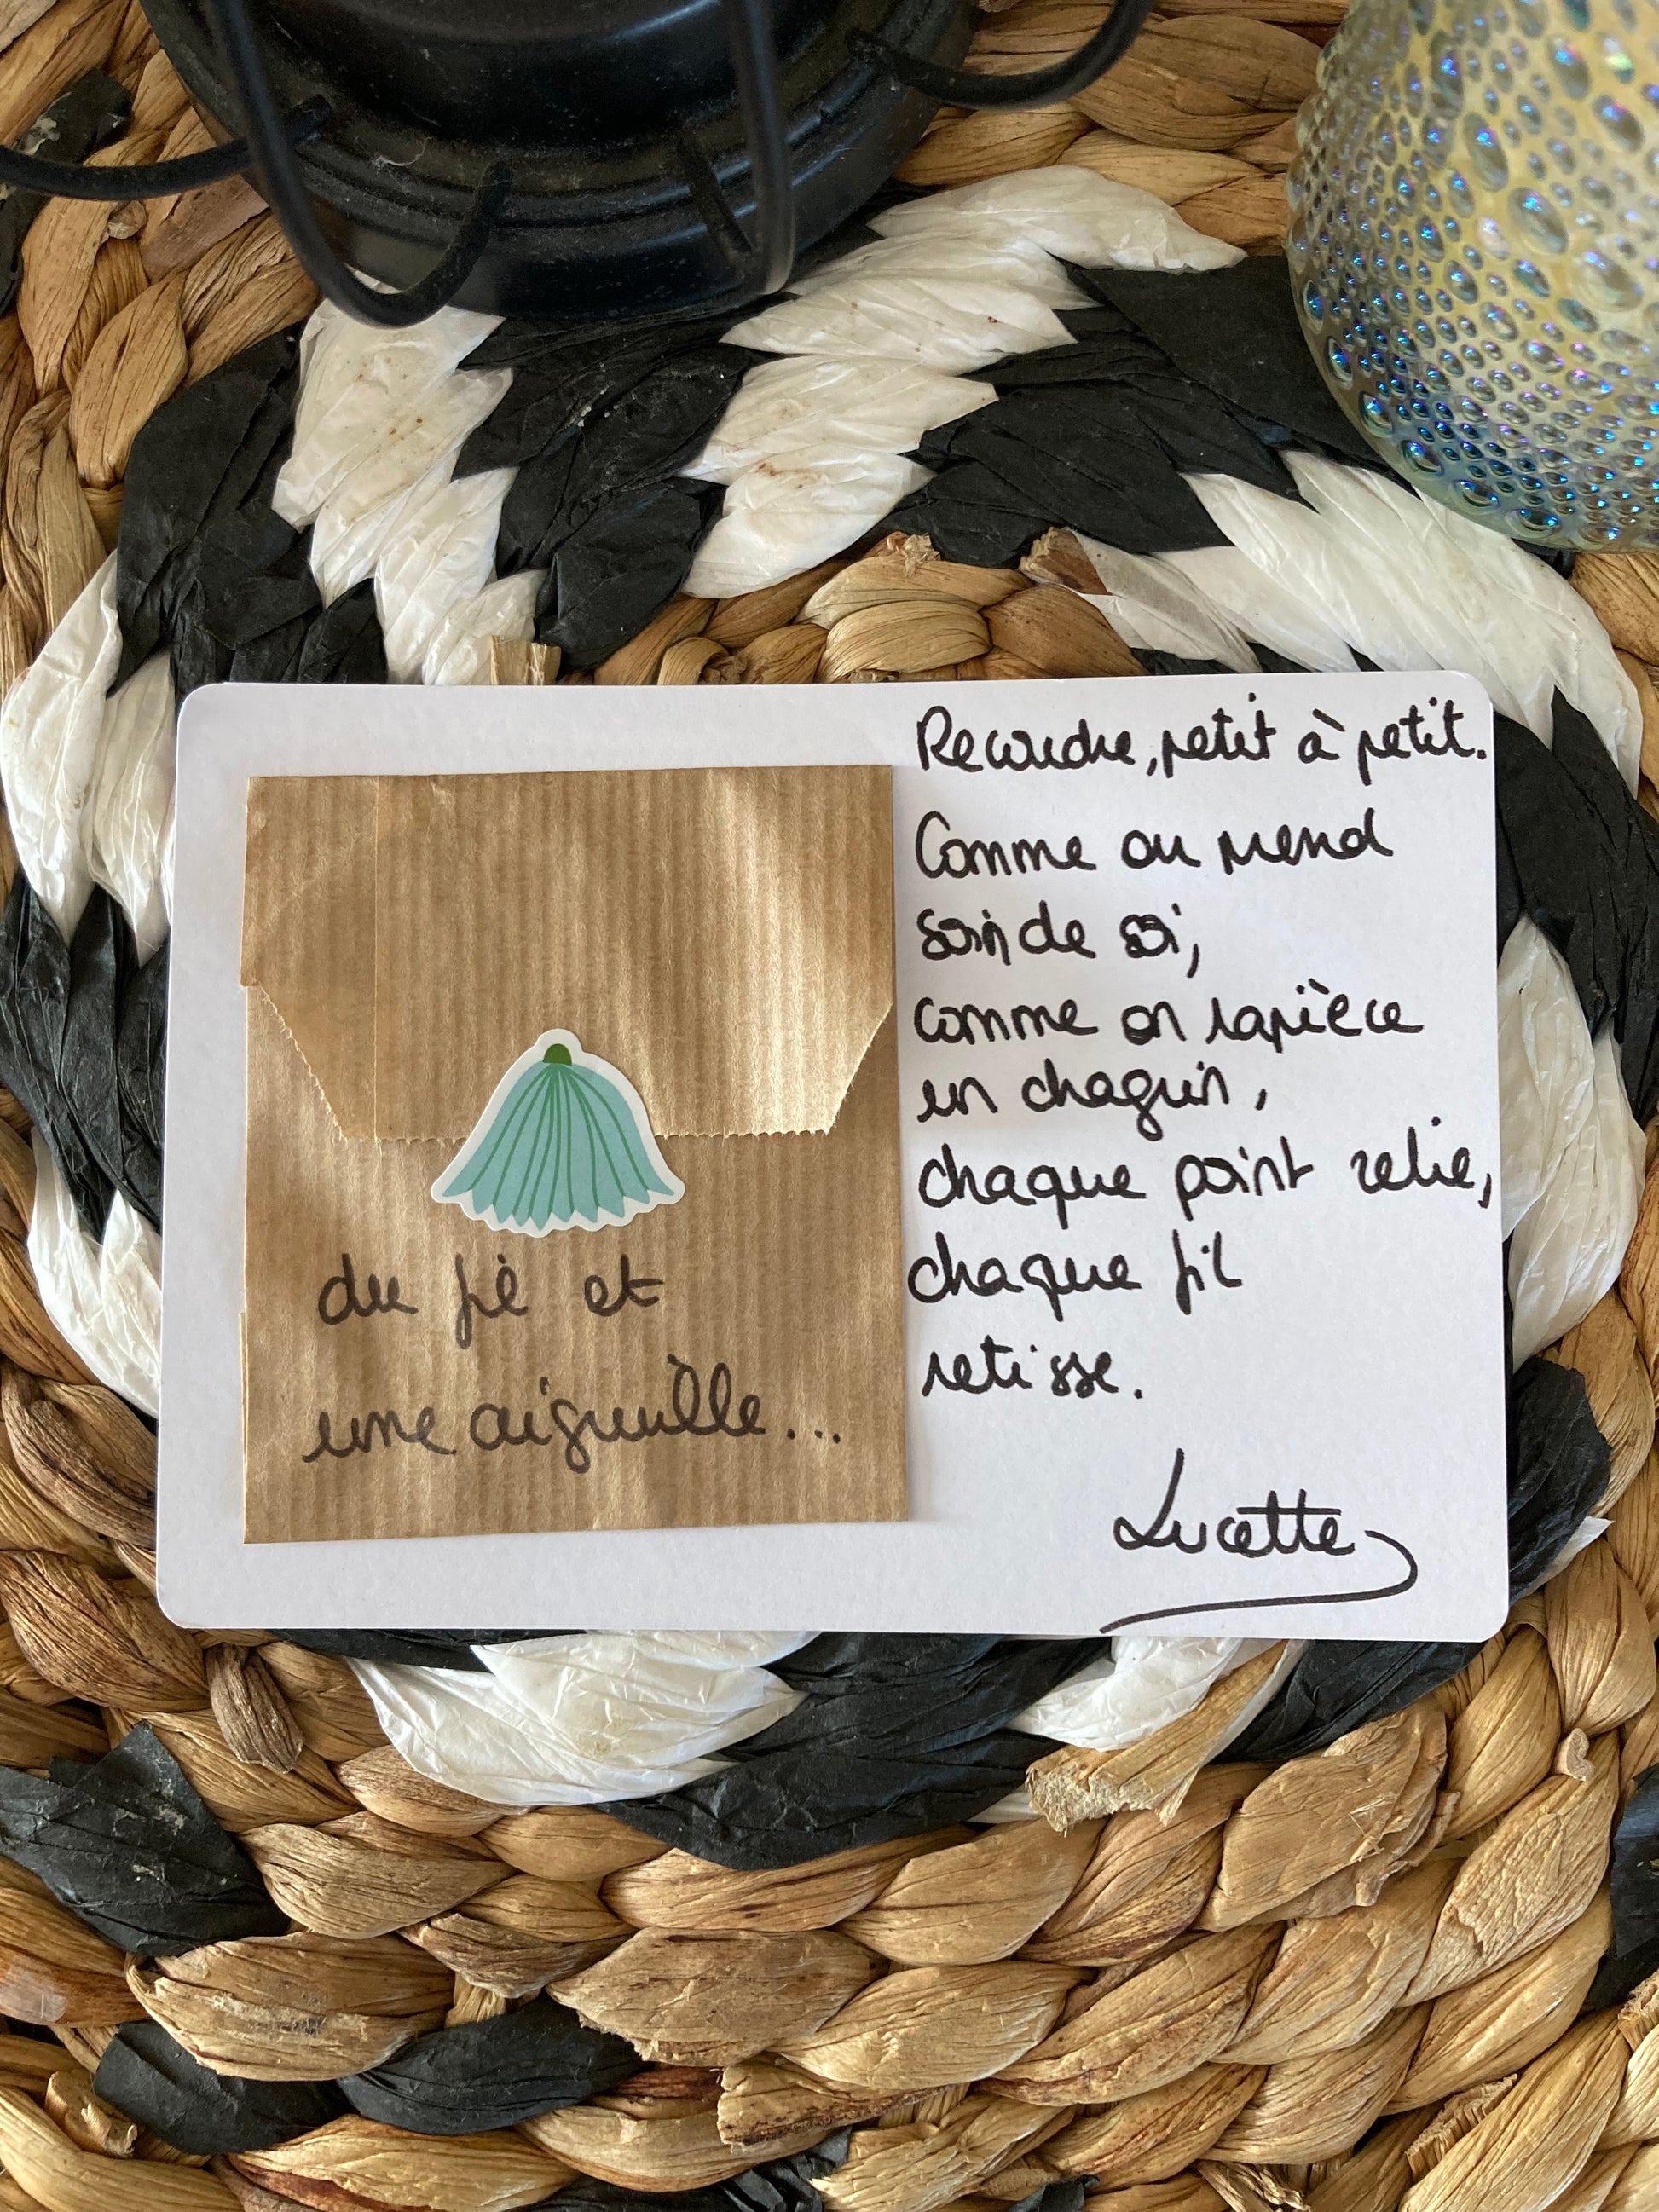 Recoudre, petit à petit.
Comme on prend
soin de soi,
comme on rapièce
un chagrin,
chaque point relie,
chaque fil
retisse.
Lucette
du fil et
une aiguille...